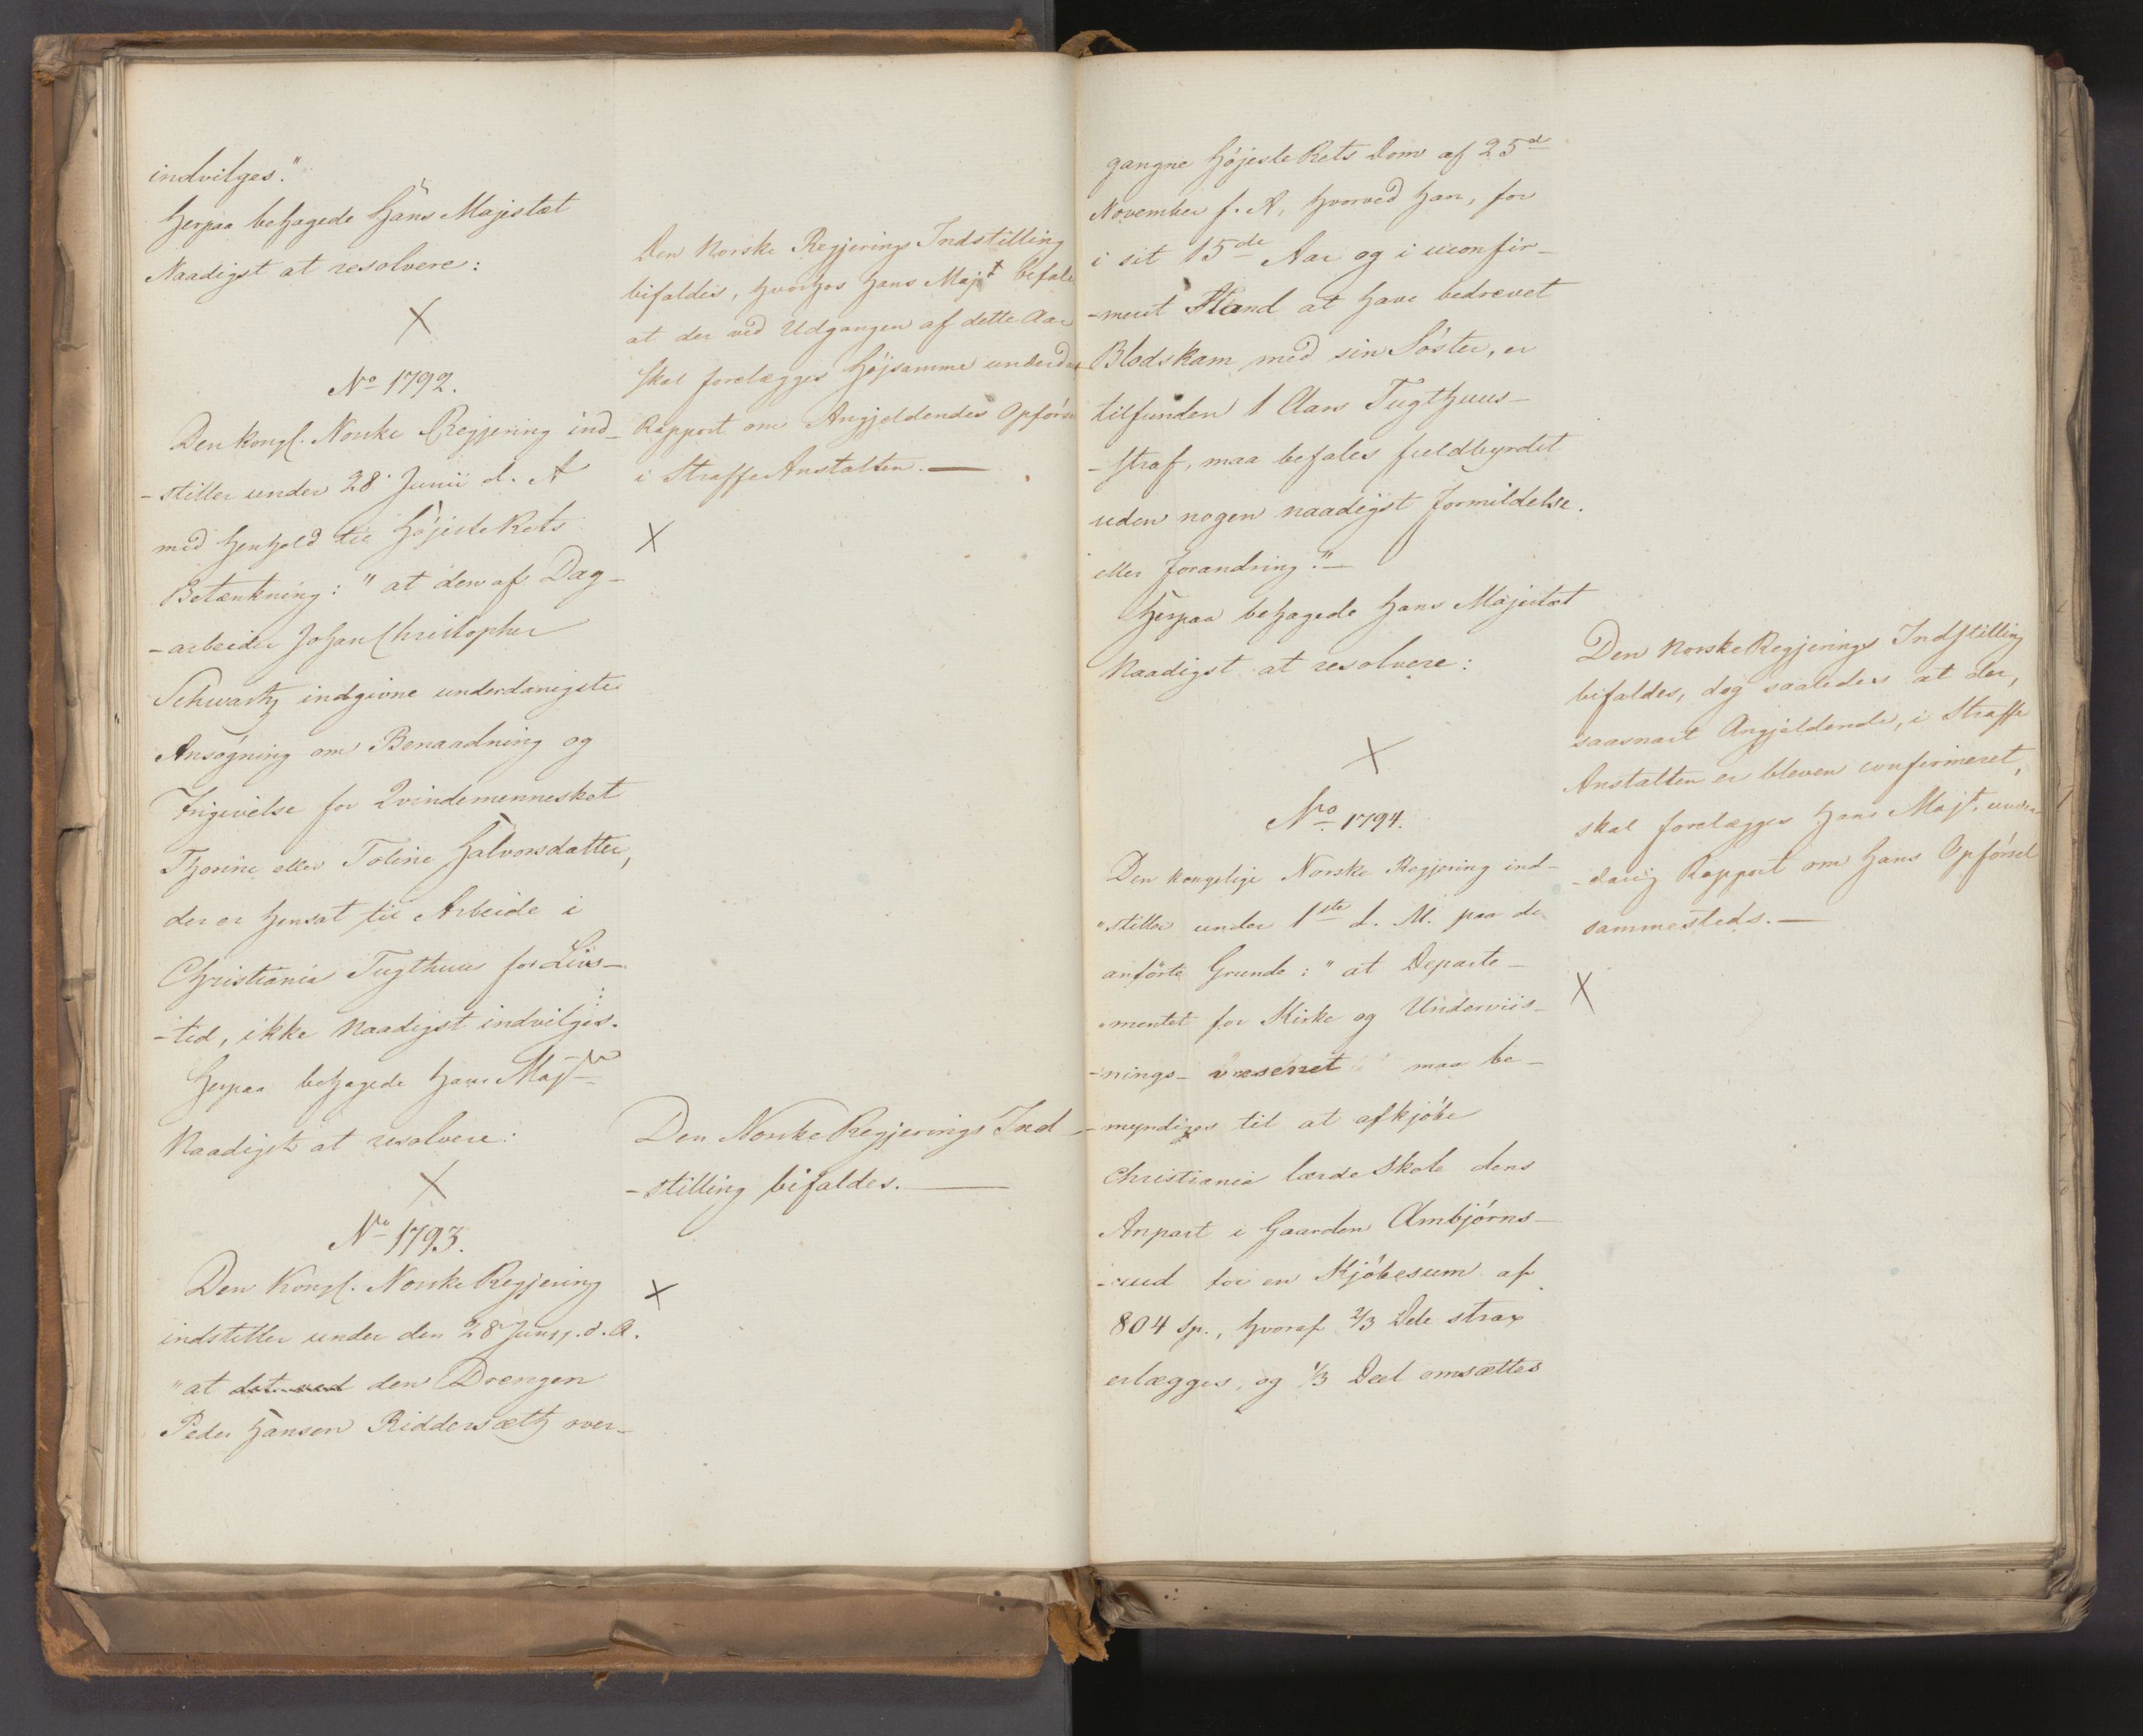 indvilges."
Herpaa behagede Hans Majestæt
Naadigst at resolvere:
X
No 1792.
Den Kongl. Norske Regjering ind-
-stiller under 28 Junii d. A
med Henhold til Højeste Rets
Betænkning: "at den af Dag-
-arbeider Johan Christopher
Schwartz indgivne underdanigste
Ansøgning om Benaadning og
Frigivelse for Qvindemennesket
Thorine eller Toline Halvorsdatter,
der er hensat til Arbeide i
Christiania Tugthuus for Livs-
-tid, ikke Naadigst indvilges.
Herpaa behagede Hans Majt
Naadigst at resolvere:
X
No 1793.
Den Kongl. Norske Regjering
indstiller under den 28 Junii d. A.
"at det ved den Drengen
Peder Hansen Riddersæth over-
Den Norske Regjerings Indstilling
bifaldes, hvorhos Hans Majt befale
at der ved Udgangen af dette Aar
skal forelægges Højsamme underd
Rapport om Angjeldendes Opførse
i Straffe Anstalten.
X
Den Norske Regjerings Ind-
-stilling bifaldes.
X
gangne Højeste Rets Dom af 25d
November f. A, hvorved han, for
i sit 15de Aar og i uconfir-
-meret Stand at have bedrevet
Blodskam med sin Søster, er
tilfunden 1 Aars Tugthuus-
-straf, maa befales fuldbyrdet
uden nogen naadigst Formildelse
eller Forandring."
Herpaa behagede Hans Majestæt
Naadigst at resolvere:
X
No 1794.
Den Kongelige Norske Regjering ind-
"stiller under 1ste d. M. paa de
anførte Grunde: "at Departe-
-mentet for Kirke og Underviis-
-nings-væsenet maa be-
-myndiges til at afkjøbe
Christiania lærde Skole dens
Anpart i Gaarden Ambjørns-
-rud for en Kjøbesum af
804 Sp., hvoraf 2/3 Dele strax
erlægges, og 1/3 Deel omsættes
Den Norske Regjerings Indstilling
bifaldes, dog saaledes at der,
saasnart Angjeldende, i Straffe
Anstalten er bleven confirmeret,
skal forelægges Hans Majt. under
-danig Rapport om Hans Opførsel
sammesteds.
X